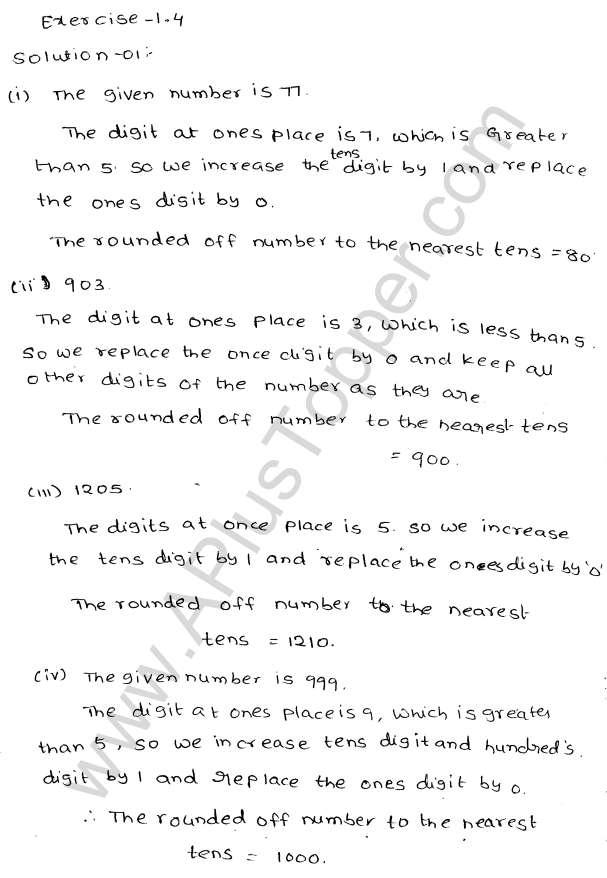 Exercise-1.4
Solution-01:-
(i) The given number is 77.
The digit at ones place is 7, which is Greater
than 5. so we increase the tens digit by 1 and replace
the ones digit by 0.
The rounded off number to the nearest tens = 80.
(ii) 903.
The digit at ones Place is 3, which is less than 5.
So we replace the once digit by 0 and keep all
other digits of the number as they are.
The rounded off number to the nearest tens
= 900.
(iii) 1205.
The digits at once place is 5. so we increase
the tens digit by 1 and replace the ones digit by '0'
The rounded off number to the nearest
tens = 1210.
(iv) The given number is 999.
The digit at ones place is 9, which is greater
than 5, so we increase tens digit and hundred's
digit by 1 and replace the ones digit by 0.
∴ The rounded off number to the nearest
tens = 1000.
www.APlusTopper.com